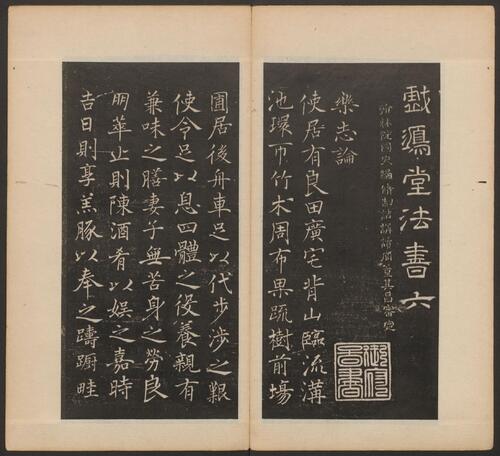 戲鴻堂法書六
翰林院國史編修制誥講讀官董其昌審定
樂志論
使居有良田廣宅背山臨流溝
池環帀竹木周布果蔬樹前場
圃居後舟車足以代步涉之艱
使令足以息四體之役養親有
兼味之膳妻子無苦身之勞良
朋萃止則陳酒肴以娛之嘉時
吉日則享羔豚以奉之躊躕畦